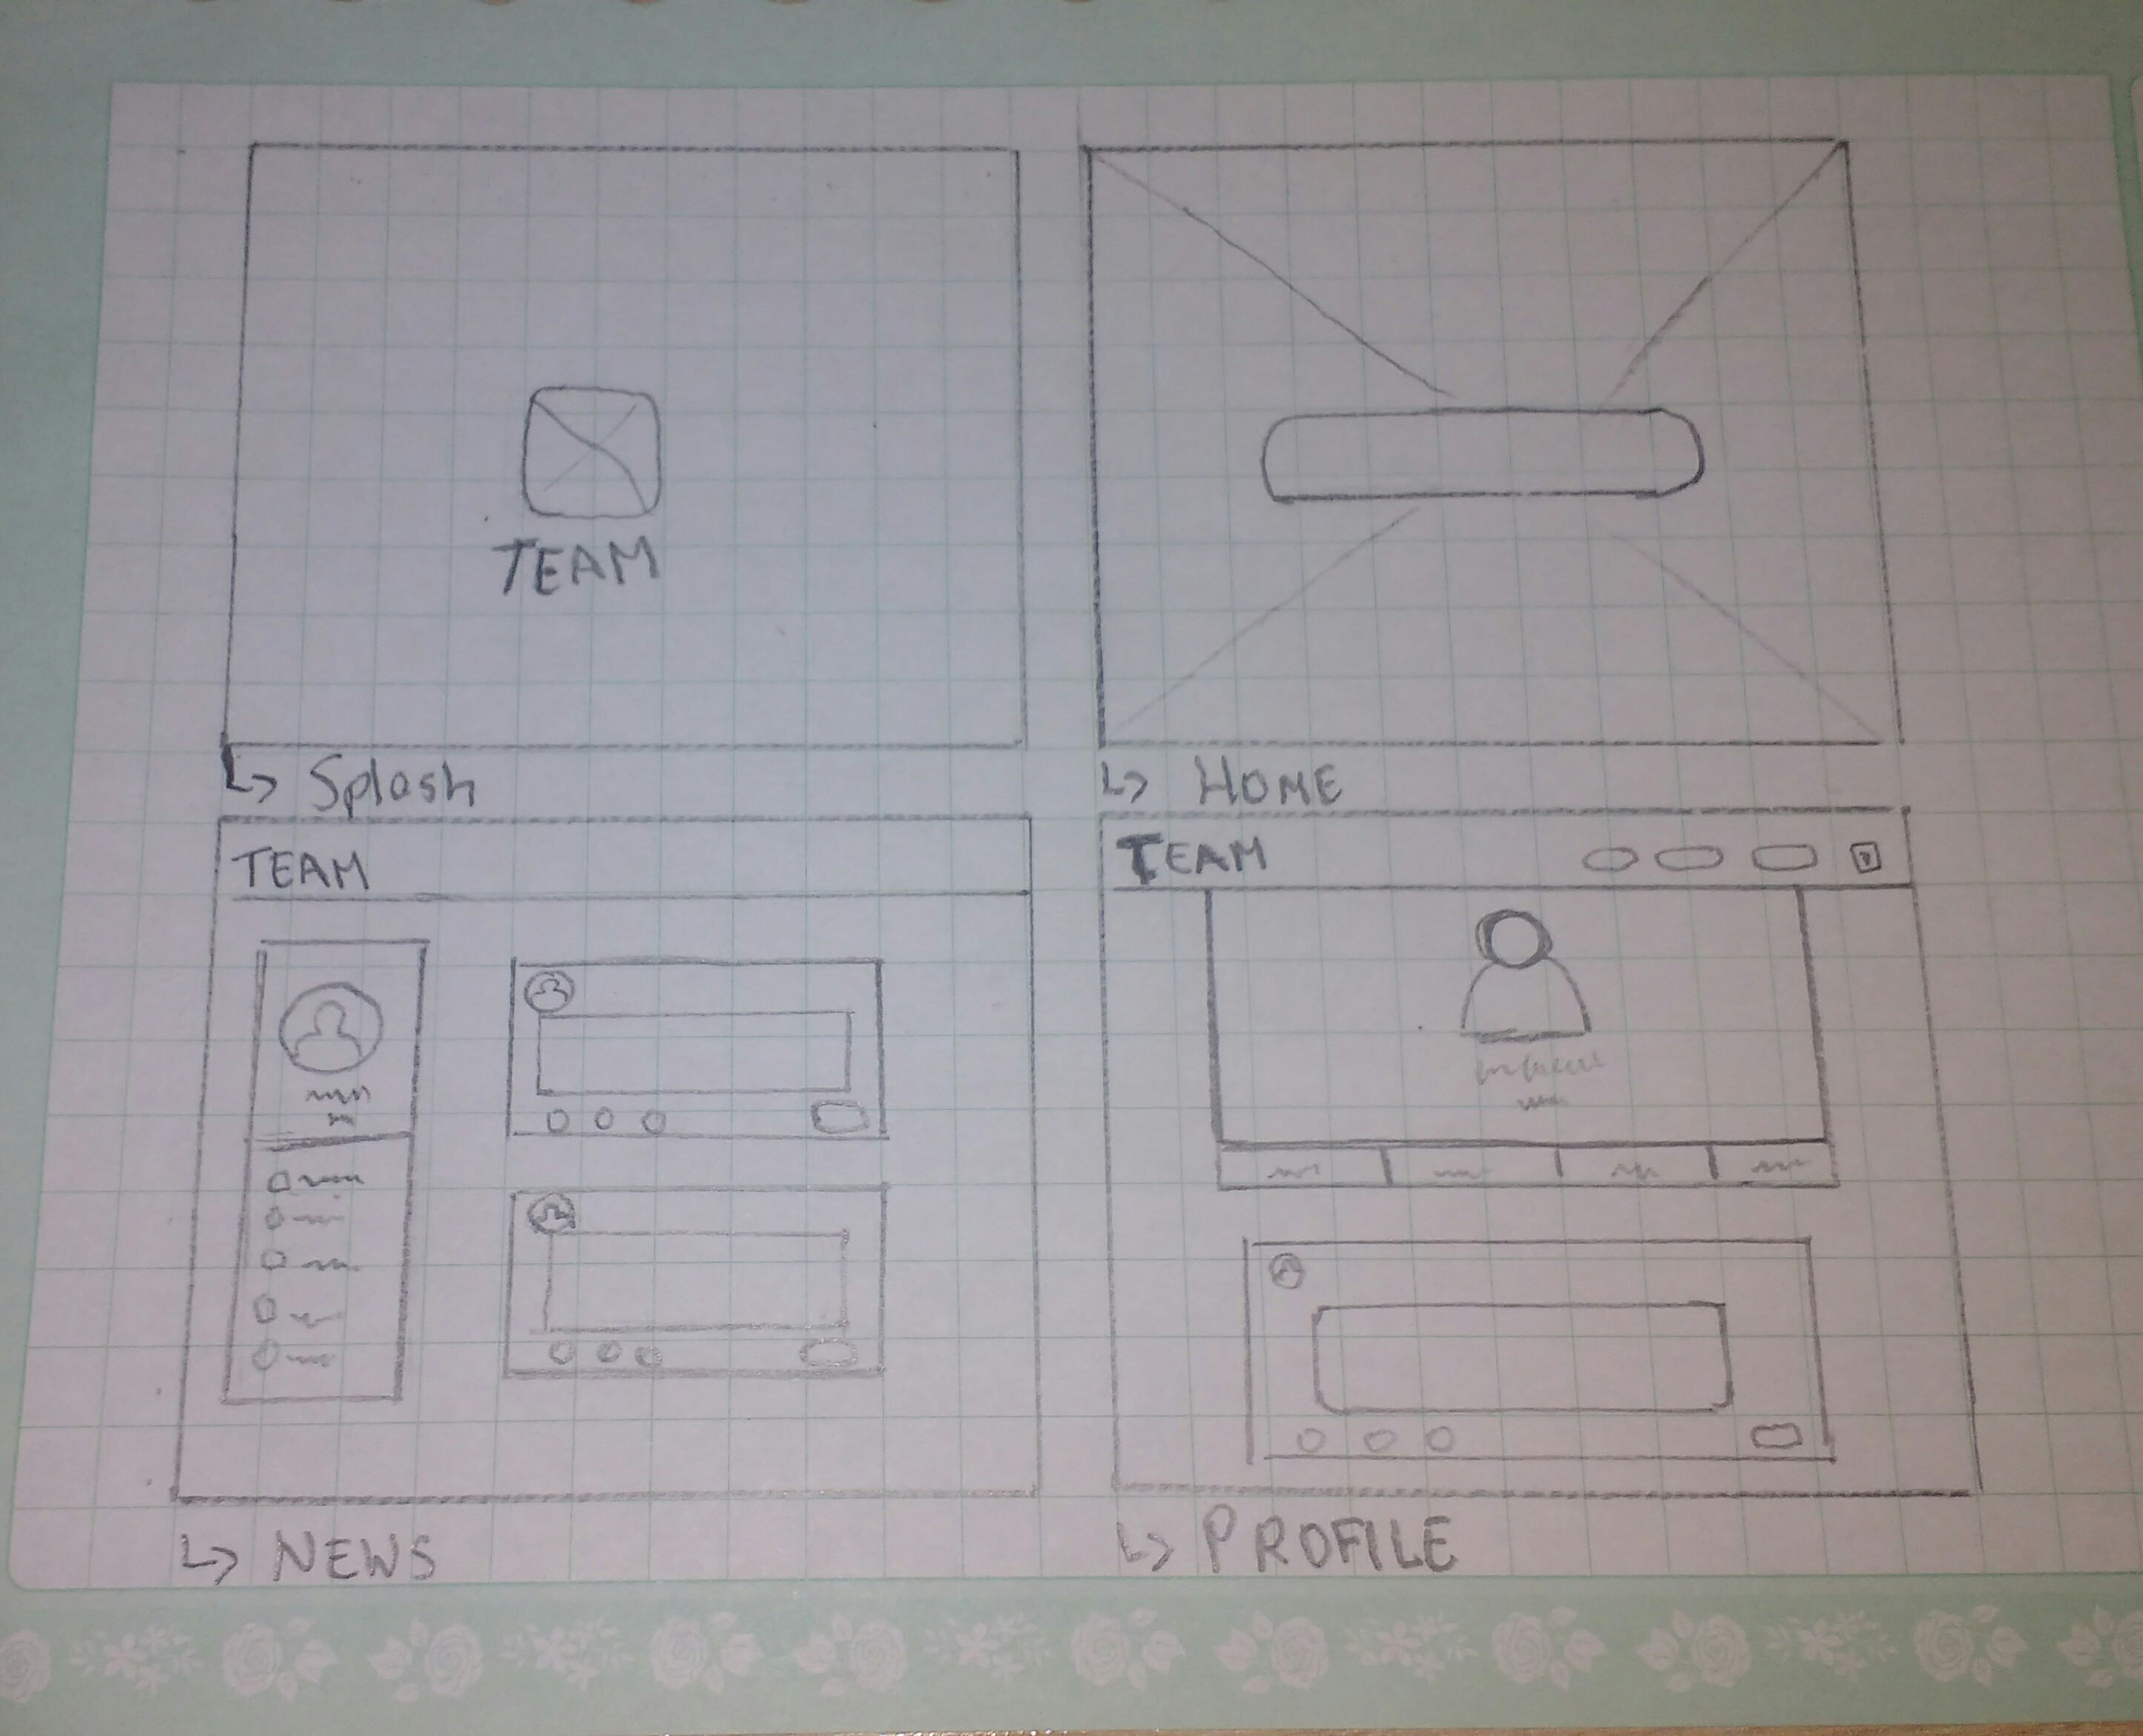 TEAM
Splash
HOME
TEAM
NEWS
TEAM
PROFILE